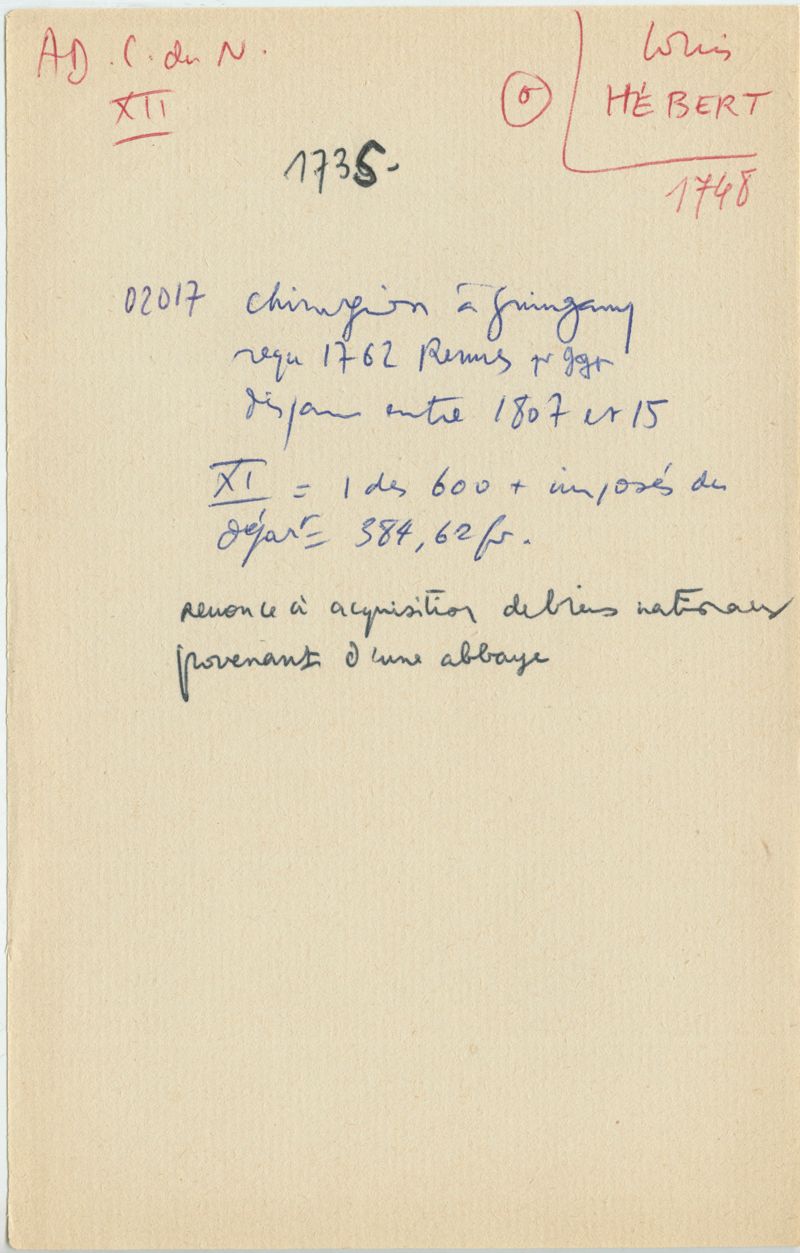 AD. C. du N.
XII
σ
Louis
HÉBERT
1748
1735-
02017 chirurgien à Guingamp
reçu 1762 Rennes pr Ggp
disparu entre 1807 et 15
XI = 1 des 600 + imposés du
départ = 384,62 fr.
renonce à acquisition de biens nationaux
provenant d'une abbaye